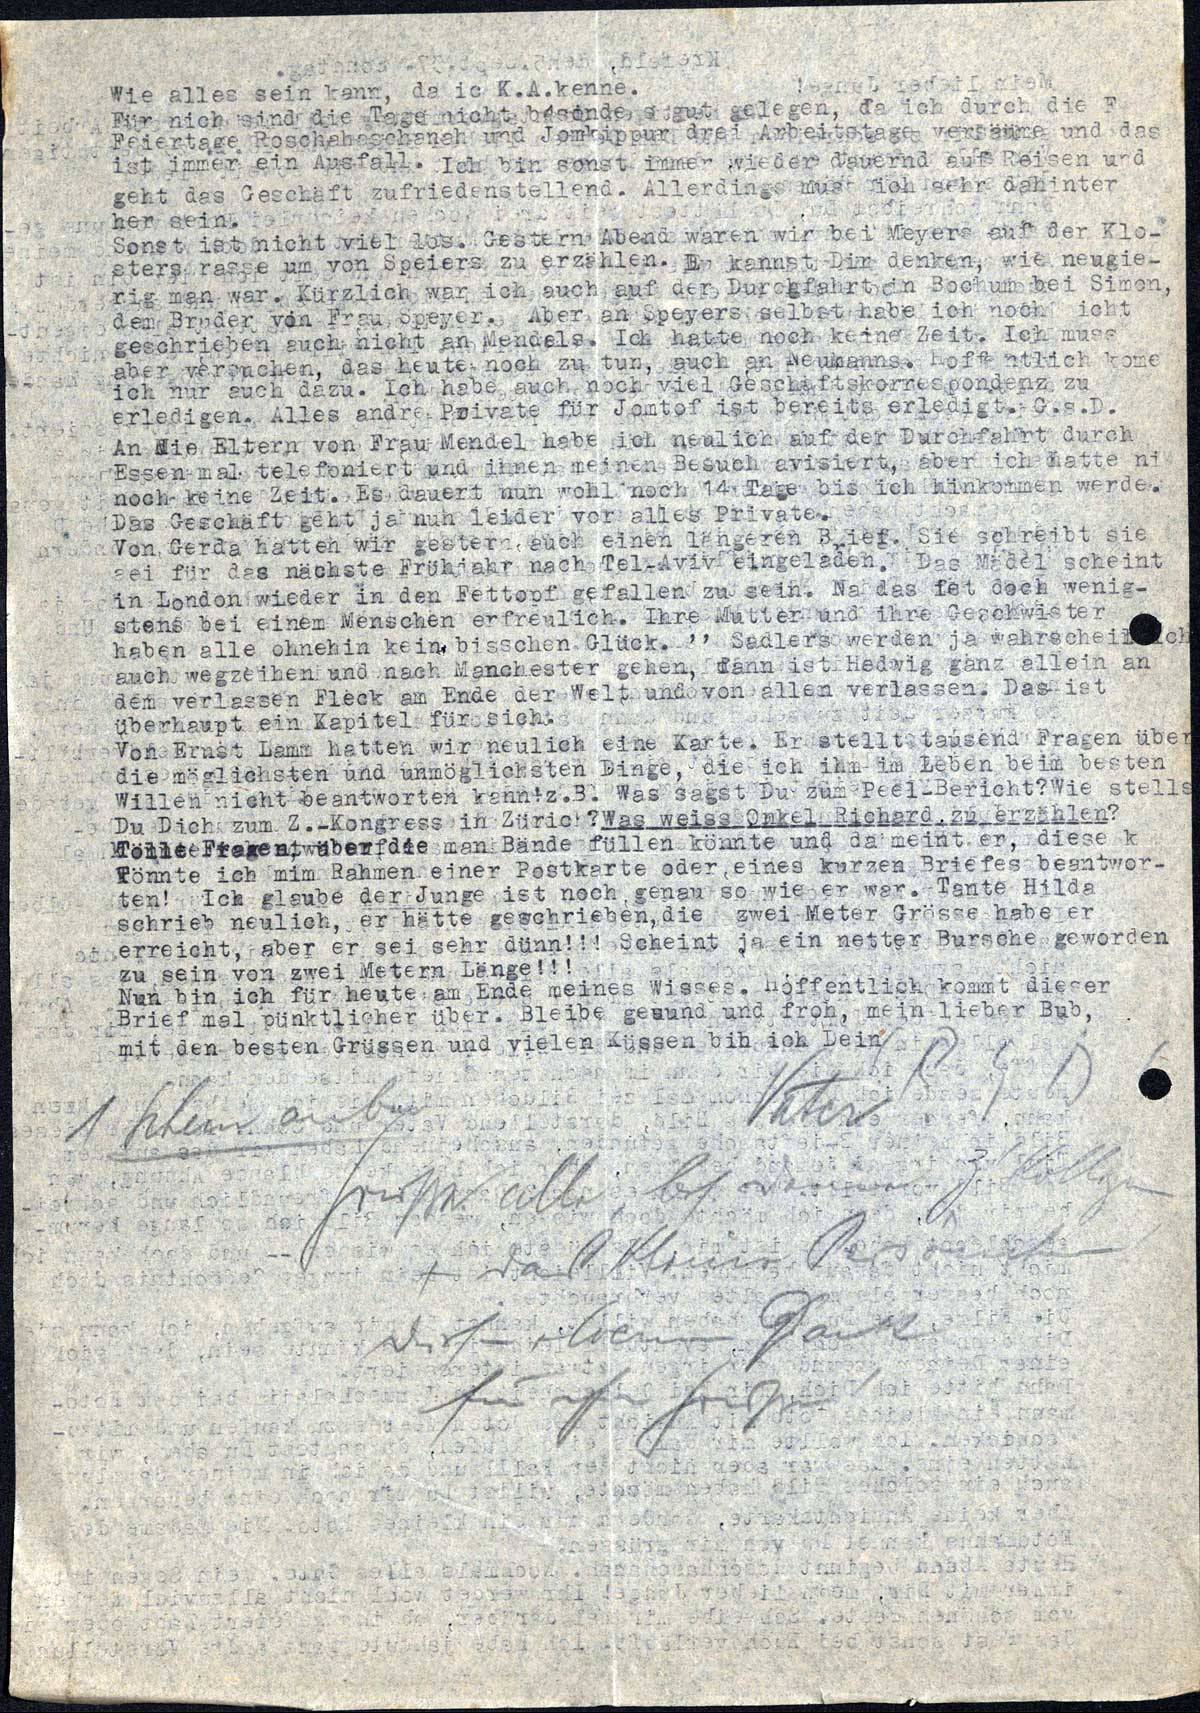 Wie alles sein kann, da ic K.A.kenne.
Für nich sind die Tage nicht besonde s gut gelegen, da ich durch die F
Feiertage Roschahaschanah und Jomkippur drei Arbeitstage versäume und das
ist immer ein Ausfall. Ich bin sonst immer wieder dauernd auf Reisen und
geht das Geschäft zufriedenstellend. Allerdings mus ich sehr dahinter
her sein.
Sonst ist nicht viel los. Gestern Abend waren wir bei Meyers auf der Klo-
sters rasse um von Speiers zu erzählen. E kannst Dir denken, wie neugie-
rig man war. Kürzlich war ich auch auf der Durchfahrt in Bochum bei Simon,
dem Bruder von Frau Speyer. Aber an Speyers selbst habe ich noch icht
geschrieben auch nicht an Mendels. Ich hatte noch keine Zeit. Ich muss
aber versuchen, das heute noch zu tun, auch an Neumanns. hoff ntlich kome
ich nur auch dazu. Ich habe auch noch viel Geschäftskorrespondenz zu
erledigen. Alles andre Private für Jomtof ist bereits erledigt. G.s.D.
An die Eltern von Frau Mendel habe ich neulich auf der Durchfahrt durch
Essen mal telefoniert und ihnen meinen Besuch avisiert, aber ich hatte ni
noch keine Zeit. Es dauert nun wohl noch 14 Tage bis ich hinkommen werde.
Das Geschäft geht ja nun leider vor alles Private.
Von Gerda hatten wir gestern auch einen längeren Brief. Sie schreibt sie
sei für das nächste Frühjahr nach Tel-Aviv eingeladen. Das Mädel scheint
in London wieder in den Fettopf gefallen zu sein. Na das ist doch wenig-
stens bei einem Menschen erfreulich. Ihre Mutter und ihre Geschwister
haben alle ohnehin kein bisschen Glück. '' Sadlers werden ja wahrscheinlich
auch wegzeihen und nach Manchester gehen, dann ist Hedwig ganz allein an
dem verlassen Fleck am Ende der Welt und von allen verlassen. Das ist
überhaupt ein Kapitel für sich.
Von Ernst Lamm hatten wir neulich eine Karte. Er stellt tausend Fragen über
die möglichsten und unmöglichsten Dinge, die ich ihm im Leben beim besten
Willen nicht beantworten kann!z.B. Was sagst Du zum Peel-Bericht?Wie stells
Du Dich zum Z.-Kongress in Zürich?Was weiss Onkel Richard zu erzählen?
Tolle Fragen, über die man Bände füllen könnte und da meint er, diese k
könnte ich mim Rahmen einer Postkarte oder eines kurzen Briefes beantwor-
ten! Ich glaube der Junge ist noch genau so wie er war. Tante Hilda
schrieb neulich, er hätte geschrieben,die zwei Meter Grösse habe er
erreicht, aber er sei sehr dünn!!! Scheint ja ein netter Bursche geworden
zu sein von zwei Metern Länge!!!
Nun bin ich für heute am Ende meines Wisses. hoffentlich kommt dieser
Brief mal pünktlicher über. Bleibe gesund und froh, mein lieber Bub,
mit den besten Grüssen und vielen Küssen bih ich Dein
Vater
1 Schein anbei
Grüsse alle
+ das kleine Persönchen
Dank
für ihre Grüsse